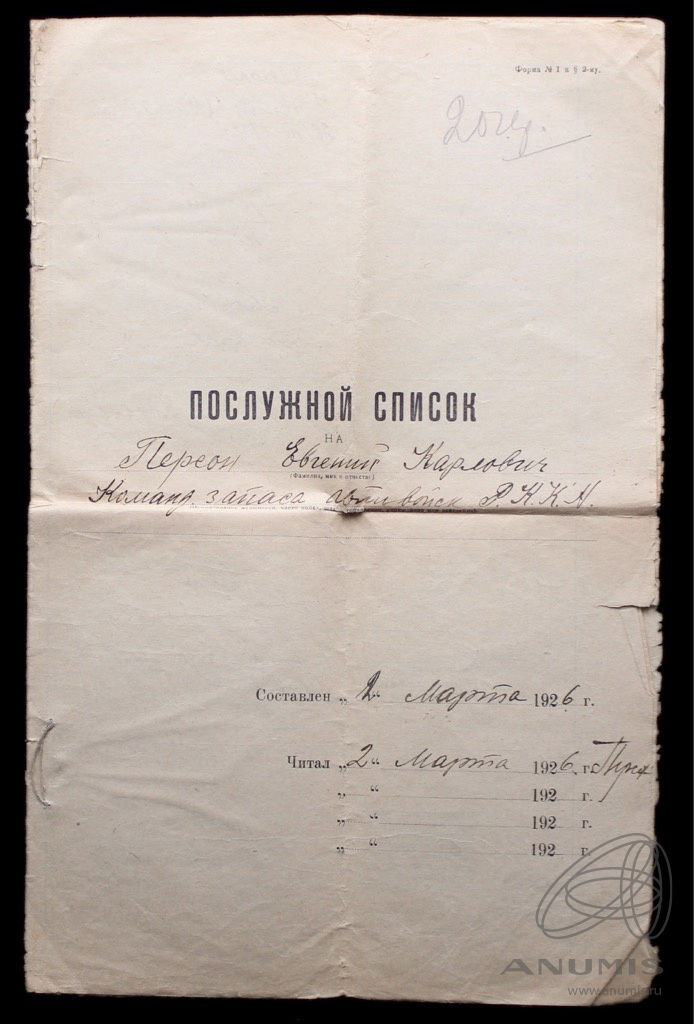 Форма № 1 к § 2-му.
ПОСЛУЖНОЙ СПИСОК
НА
Персон Евгений Карлович
(Фамилия, имя и отчество)
Команд. запаса автовойск Р.К.К.А.
Составлен „2“ Марта 1926 г.
Читал „2“ Марта 1926 г.
„ “ 192 г.
„ “ 192 г.
„ “ 192 г.
ANUMIS
www.anumis.ru